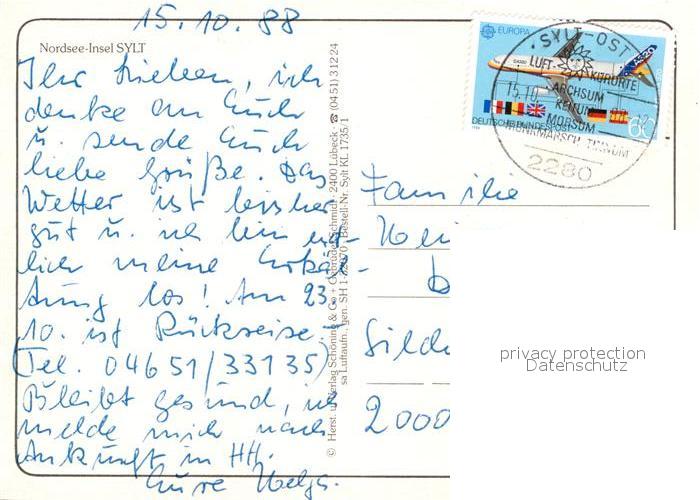 15.10.88
Nordsee-Insel SYLT
Ihr Lieben, ich
denke an Euch
u. sende Euch
liebe Grüße. Das
Wetter ist bisher
gut u. ich bin end-
lich meine Erkäl-
tung los! Am 23.
10. ist Rückreise.
(Tel. 04651/33135)
Bleibt gesund, ich
melde mich nach
Ankunft in HH.
Eure Helga.
© Herst. u. Verlag Schöning & Co + Gebrüder Schmidt · 2400 Lübeck · ☎ (0451) 31224
Bestell-Nr. Sylt KL 1735/1
EUROPA
A320
DEUTSCHE BUNDESPOST
60
SYLT-OST
LUFT- KURORTE
15.10
ARCHSUM
KEITUM
MORSUM
MUNKMARSCH, TINNUM
2280
Familie
2000
privacy protection
Datenschutz